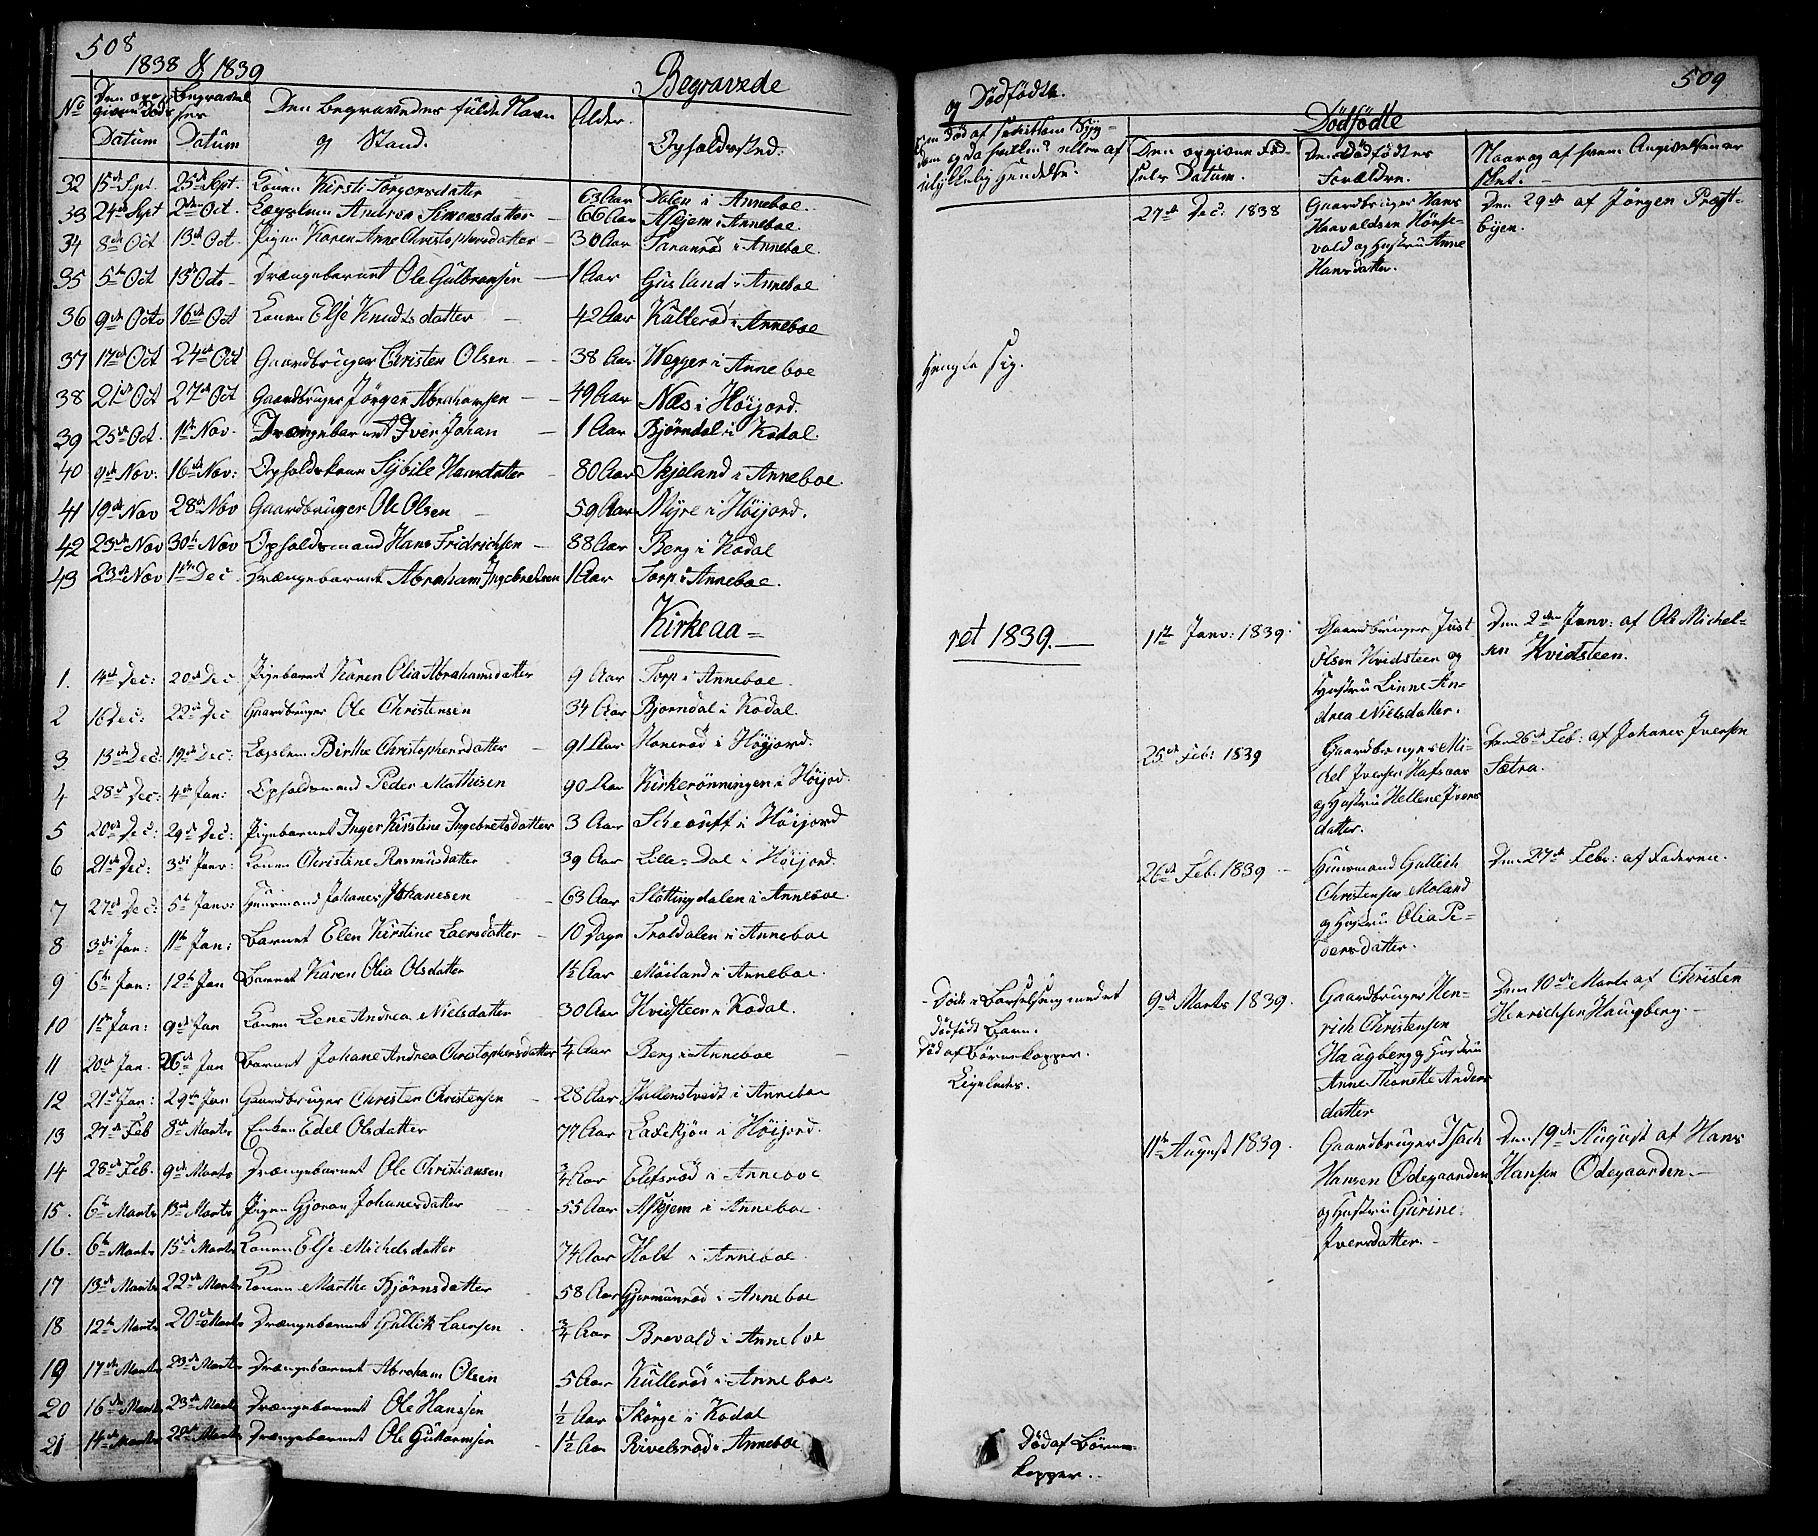 508
1838 & 1839
Begravede
No
Datum
Begravelses Datum
Den begravedes fulde Navn og Stand.
Alder.
Opholdssted.
32 15de Spt. 25de Sept. Konen Kirsti Jörgensdatter 63 Aar Dalen i Anneboe.
33 24de Sept 2den Oct. Lægslem Andrea Simonsdatter 66 Aar Askjem i Anneboe.
34 8de Oct 13de Oct. Pigen Karen Anne Christophersdatter 30 Aar i Anneboe.
35 5te Oct 13de Octo Drængebarnet Ole Gulbransen 1 Aar Gusland i Anneboe
36 9de Octo 16de Oct Konen Else Knudsdatter 42 Aar Kullerød i Anneboe
37 17de Oct 24de Oct Gaardbruger Christen Olsen 38 Aar Wegger i Anneboe
38 21de Oct 27de Oct Gaardbruger Jörgen Abrahamsen 49 Aar Næs i Höijord.
39 25de Oct. 1ste Nov. Drængebarnet Iver Johan 1 Aar Bjørndal i Kodal.
40 9de Nov: 16de Nov: Opholdskone Sybile Hansdatter 80 Aar Skjeland i Anneboe.
41 19de Nov 28de Nov Gaardbruger Ole Olsen 59 Aar Myre i Höijord.
42 23de Nov 30te Nov Opholdsmand Hans Fridrichsen 88 Aar Berg i Kodal
43 23de Nov 1ste Dec Drængebarnet Abraham Ingebretsen 1 Aar Torp i Anneboe.
Kirkeaa=
1. 14de Dec: 20de Dec Pigebarnet Karen Olia Abrahamsdatter 9 Aar Torp i Anneboe.
2 16 Dec: 22de Dec Gaardbruger Ole Christensen 34 Aar Bjorndal i Kodal.
3 13de Dec: 19de Dec: Lægslem Birthe Christophersdatter 91 Aar Honerød i Höijord.
4 28de Dec: 4de Jan: Opholdsmand Peder Mathisen 90 Aar Kirkerønningen i Höijord.
5 20de Dec: 29de Dec: Pigebarnet Inger Kirstine Ingebretsdatter 3 Aar i Höijord
6 21de Dec: 3die Janv: Konen Christine Rasmusdatter 39 Aar Lille-Dal i Höijord.
7 27de Dec: 5te Janv: Huusmand Johanes Johanesen 63 Aar Slottingdalen i Anneboe.
8 3die Jan: 11te Jan: Barnet Elen Kirstine Laersdatter 10 Dage Troldalen i Anneboe
9 6te Jan: 12te Jan Barnet Karen Olia Olsdatter 1½ Aar Møiland i Anneboe.
10 1ste Jan: 9de Jan Konen Lene Andrea Nielsdatter 30 Aar Hvidsteen i Kodal.
11 20de Jan. 26de Jan Barnet Johane Andrea Christophersdatter ¼ Aar Berg i Anneboe
12 21de Jan: 29de Jan Gaardbruger Christen Christensen 28 Aar Hallenstvedt i Anneboe
13 27de Feb 8de Marts Enken Edel Olsdatter 77 Aar i Höijord.
14 28de Feb. 9de Marts Drængebarnet Ole Christiansen ¾ Aar Elefsrød i Anneboe
15. 6te Marts 13de Marts Pigen Gjoran Johanesdatter 55 Aar Askjem i Anneboe.
16. 6te Marts 15de Marts Konen Else Michelsdatter 74 Aar Holt i Anneboe
17 13de Marts 22de Marts Konen Marthe Bjørnsdatter 58 Aar Gjermunrød i Anneboe
18 12te Marts 20de Marts Drængebarnet Gullik Laersen ¾ Aar Brevald i Anneboe
19 17de Marts 23de Marts Drængebarnet Abraham Olsen 5 Aar Kullerød i Anneboe
20 16de Marts 23de Marts Drængebarnet Ole Hanssen ½ Aar Skorge i Kodal
21 14de Marts 22de Marts Drængebarnet Ole Guttormsen 1½ Aar Rivelsrød i Anneboe
509
og Dödfödte.
Dödfödte
Den opgivne Födsels Datum.
Den Dödfödtes Forældre.
Naar og af hvem Angivelsen er skeet.
27de Dec: 1838
Gaardbruger Hans
Haavaldsen Hönsvald og Hustru Anne
Hansdatter.
Den 29de af Jörgen Prestbyen.
Hengte sig.
ret 1839.
1ste Janv: 1839.
Gaardbruger Just
Olsen Hvidsteen og
Hustru Linne Andrea Nielsdatter.
Den 2den Janv: af Ole Michelsen Hvidsteen.
25de Feb: 1839
Gaardbruger Michel Iversen
og Hustru Hellene Iversdatter.
Den 26de Feb: af Johanes Iversen
Sætra.
26de Feb. 1839
Huusmand Gullich
Christensen Moland
og Hustru Olia Pedersdatter.
Den 27de Febr: af Faderen.
Döde i Barselseng med et
dödfödt Barn.
Död af Börnekopper.
Ligeledes.
9de Marts 1839.
Gaardbruger Henrich Christensen
Haugberg og Hustru
Anne Thonette Andersdatter
Den 10de Marts af Christen
Henrichsen Haugberg.
11te August 1839.
Gaardbruger Isach
Hansen Ödegaarden
og Hustru Gurine
Iversdatter.
Den 19de August af Hans
Hansen Ödegaarden.
Död af Börnekopper.